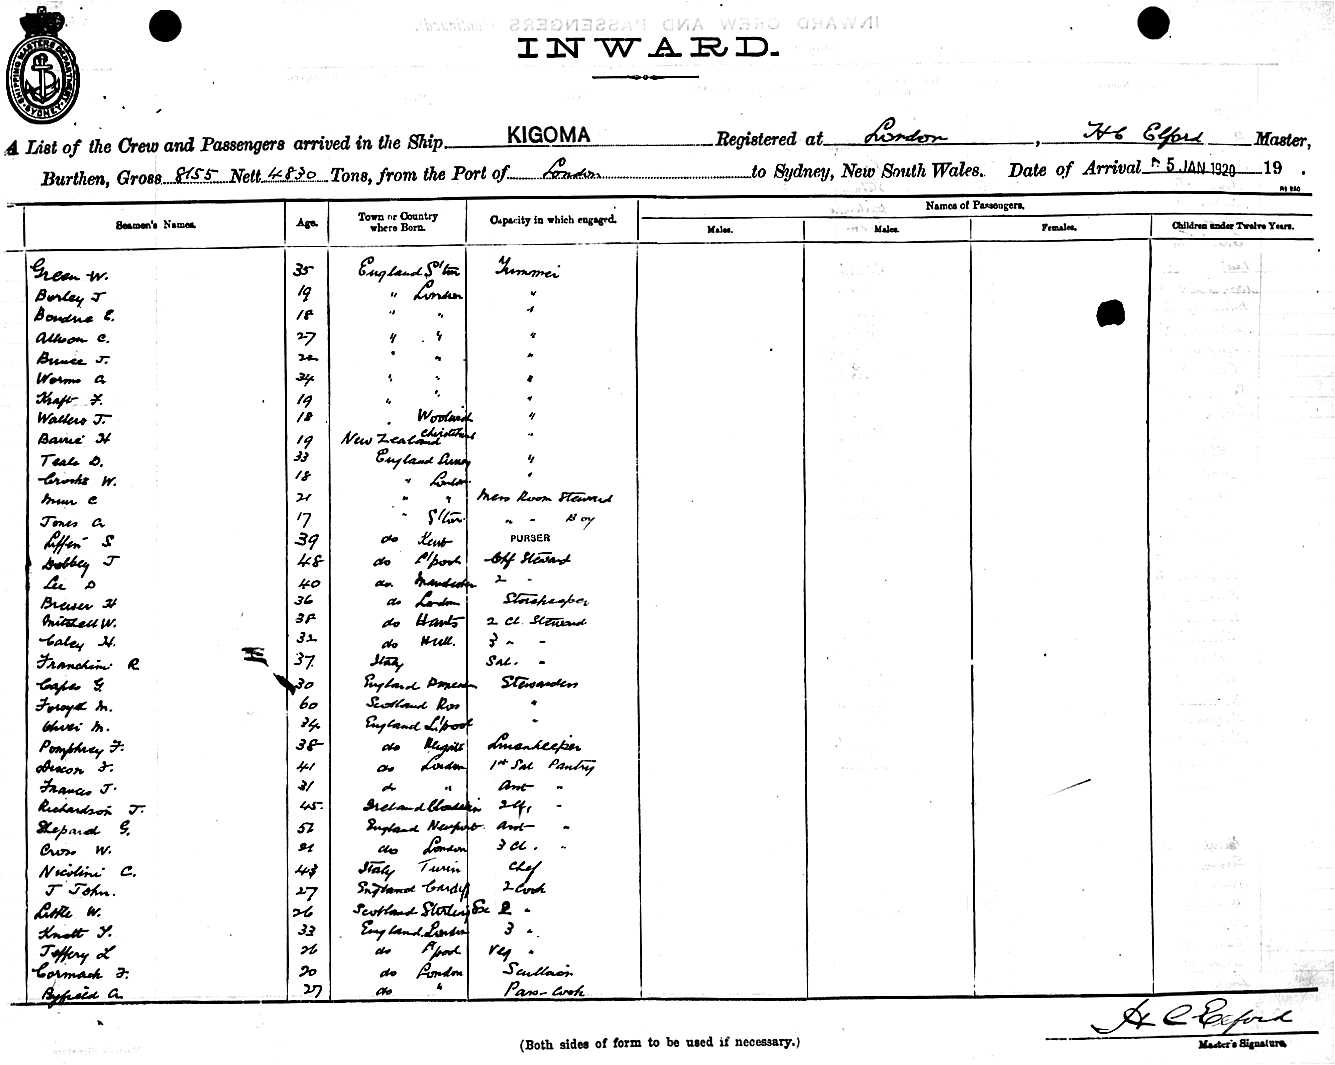 INWARD.
SHIPPING MASTERS DEPARTMENT SYDNEY
A List of the Crew and Passengers arrived in the Ship KIGOMA Registered at London, H C Elford Master,
Burthen, Gross 8155 Nett 4830 Tons, from the Port of London to Sydney, New South Wales. Date of Arrival 5 JAN 1920 19 .
Names of Passengers.
Seamen's Names. Age. Town or Country where Born. Capacity in which engaged. Males. Males. Females. Children under Twelve Years.
Green W. 35 England S'ton Trimmer
Burley J 19 " London "
E. 18 " " "
C. 27 " " "
Bruce J. 22 " " "
Worms A 34 " " "
Kraft F. 19 " " "
Walters J. 18 " Woolwich "
Barrie H 19 New Zealand Christchurch "
Teale D. 33 England Surrey "
Crooks W. 18 " London "
Muir C 21 " " Mess Room Steward
Jones A 17 " S'ton " " Boy
Liffen S 39 do Kent PURSER
Dobbey J 48 do L'pool Chf Steward
Lee D 40 do Manchester 2 "
Brewer H 36 do London Storekeeper
Mitchell W. 38 do Hants 2 Cl. Steward
Caley H. 32 do Hull. 3 " "
Franchini R 37 Italy Sal. "
Capes G. 30 England Stewardess
M. 60 Scotland Ross "
M. 34 England L'pool "
Pomphrey F. 38 do Linenkeeper
Dixon F. 41 do London 1st Sal Pantry
Frances J. 31 do " Asst "
Richardson J. 45 Ireland 2 Cl. "
Shepard G. 52 England Newport Asst "
Cross W. 21 do London 3 Cl. "
Nicolini C. 43 Italy Turin Chef
J John. 27 England Cardiff 2 Cook
Little W. 26 Scotland Stirling Ex 2 "
Knott F. 33 England London 3 "
Jeffery L 26 do L'pool Veg "
Cormack F. 20 do London Scullion
Byfield A. 27 do " Pass. Cook
H C Elford
Master's Signature.
(Both sides of form to be used if necessary.)